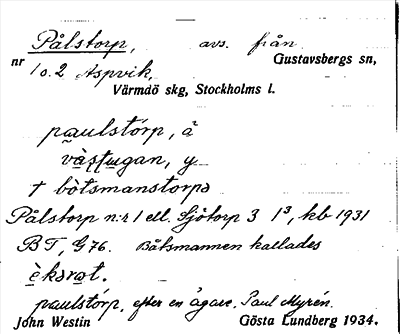 Pålstorp, avs. från
nr 1 o. 2 Aspvik, Gustavsbergs sn,
Värmdö skg, Stockholms l.
paulstórp, å
västugan, y
† bòtsmanstorpə
Pålstorp n:r 1 ell. Sjötorp 3 1³, kb 1931
BT, G 76. Båtsmannen kallades
èkarət.
paulstórp, efter en ägare, Paul Myrén.
John Westin Gösta Lundberg 1934.